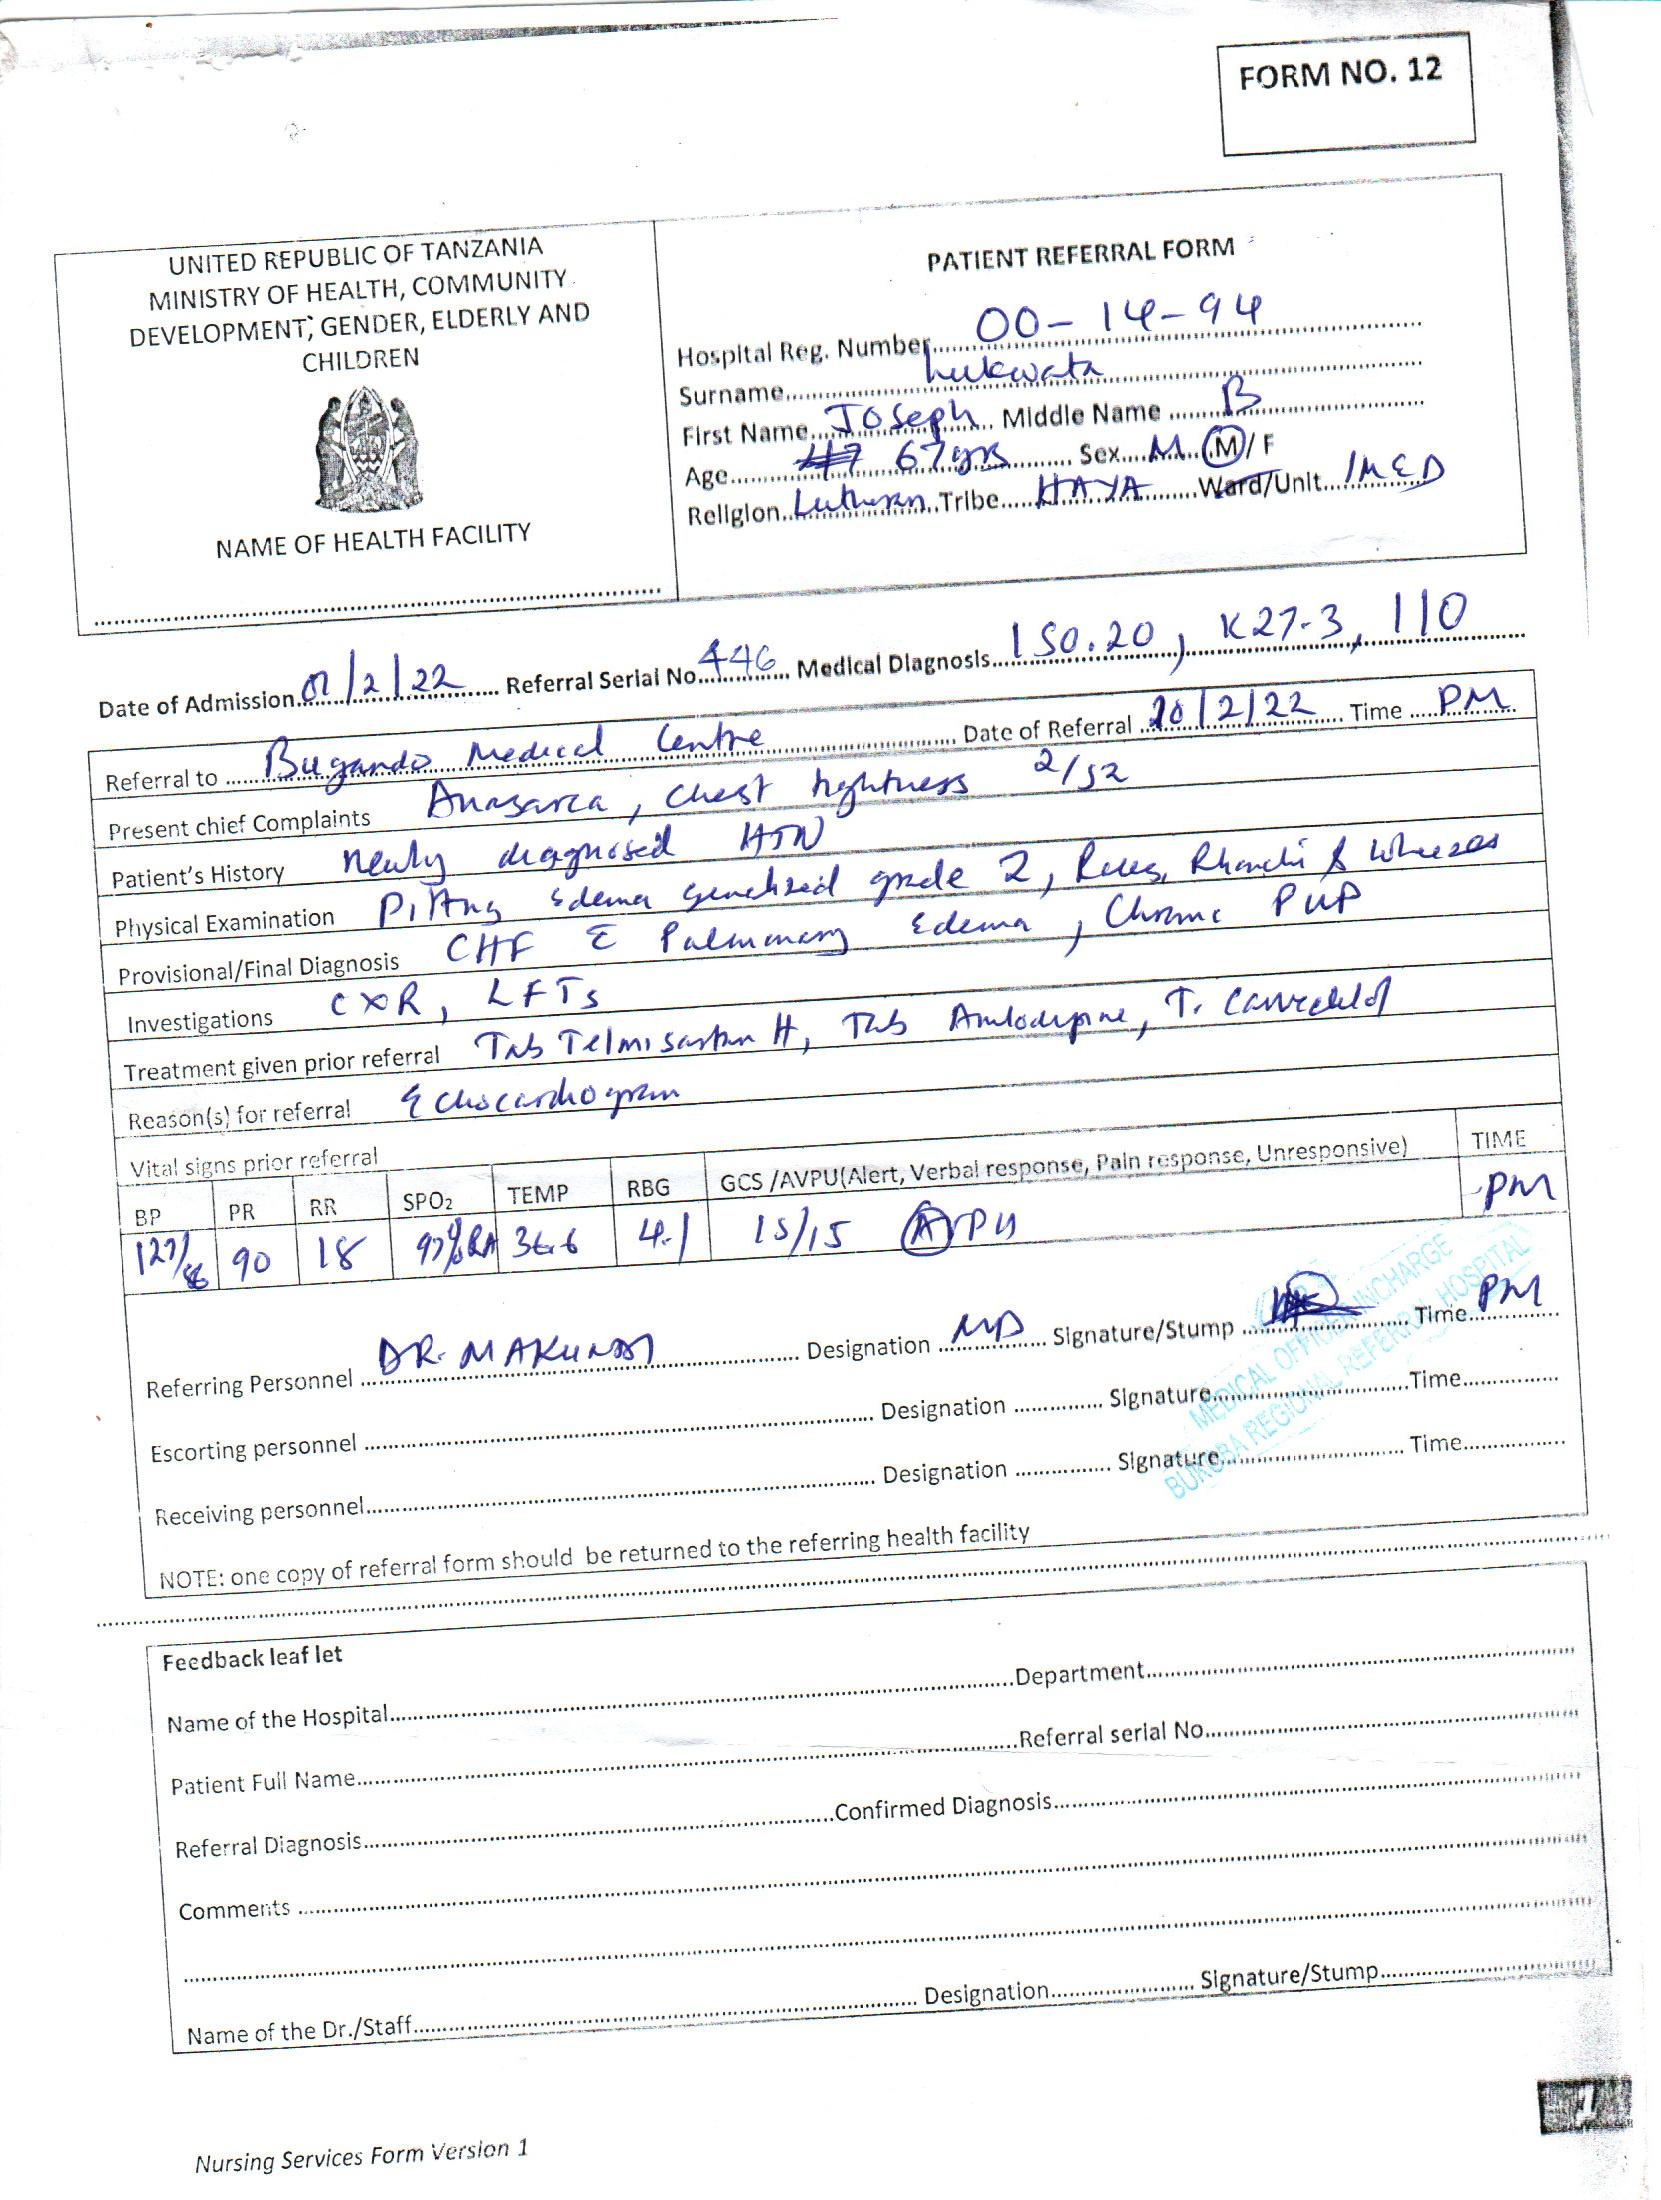 FORM NO. 12
UNITED REPUBLIC OF TANZANIA
MINISTRY OF HEALTH, COMMUNITY
DEVELOPMENT, GENDER, ELDERLY AND
CHILDREN
NAME OF HEALTH FACILITY
PATIENT REFERRAL FORM
Hospital Reg. Number 00-14-94
Surname
First Name Joseph Middle Name B
Age 67yrs Sex M M/F
Religion Lutheran Tribe HAYA Ward/Unit IMED
Date of Admission /2/22 Referral Serial No 446 Medical Diagnosis I50.20, K27.3, I10
Referral to Bugando Medical Centre Date of Referral 20/2/22 Time PM
Present chief Complaints Anasarca, chest tightness 2/52
Patient's History newly diagnosed HTN
Physical Examination Pitting Edema generalized grade 2, Rales, Rhonchi & Wheezes
Provisional/Final Diagnosis CHF c̄ Pulmonary Edema, Chronic PUD
Investigations CXR, LFTs
Treatment given prior referral Tab Telmisartan H, Tab Amlodipine, T. Carvedilol
Reason(s) for referral Echocardiogram
Vital signs prior referral
BP PR RR SPO2 TEMP RBG GCS /AVPU(Alert, Verbal response, Pain response, Unresponsive) TIME
127/ 90 18 97%RA 36.6 4.1 15/15 AVPU PM
Referring Personnel DR. MAKUNDI Designation MD Signature/Stump Time PM
Escorting personnel Designation Signature Time
Receiving personnel Designation Signature Time
MEDICAL OFFICER INCHARGE
BUKOBA REGIONAL REFERRAL HOSPITAL
NOTE: one copy of referral form should be returned to the referring health facility
Feedback leaf let
Name of the Hospital Department
Patient Full Name Referral serial No
Referral Diagnosis Confirmed Diagnosis
Comments
Name of the Dr./Staff Designation Signature/Stump
Nursing Services Form Version 1